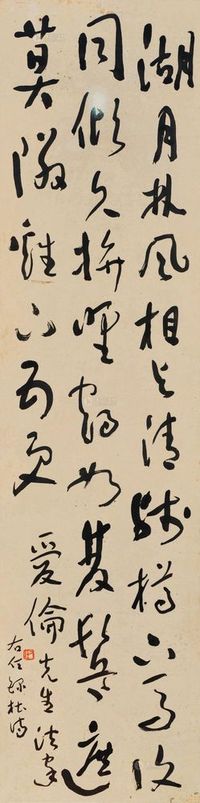 湖月林風相与清殘樽下馬復
同傾久拚野鶴如雙鬢遮
莫鄰雞下五更
愛倫先生法家
右任錄杜詩